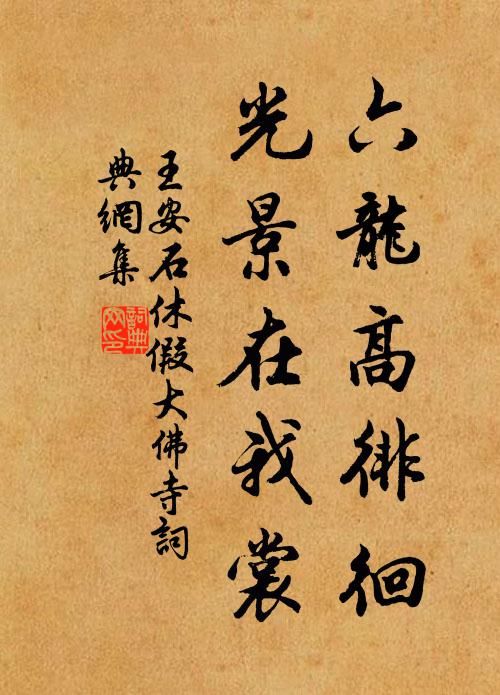 六龍高徘徊
光景在我裳
王安石休假大佛寺詞
典網集
詞典網印